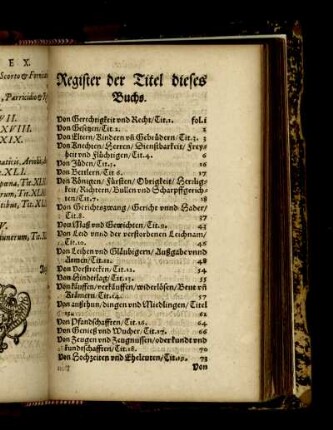 E X.
Scorto & Forni
, Parricido &
VII.
XVIII.
XIX.
XLI.
pana, Tit. XII
ntium, Tit. XLII
tibus, Tit. XLI
V.
unerum, Tit. X
Register der Titel dieses
Buchs.
Von Gerechtigkeit vnd Recht/Tit.1. fol.1
Von Gesetzen/Tit.2. 2
Von Eltern/Kindern vñ Gebrüdern/Tit.3. 3
Von Knechten/Herren/Dienstbarkeit/Frey-
heit vnd Flüchtigen/Tit.4. 6
Von Jüden/Tit.5. 16
Von Bettlern/Tit.6. 17
Von Königen/Fürsten/Obrigkeit/Herrlig-
keit/Richtern/Bullen vnd Scharpffgerich-
ten/Tit.7. 18
Von Gerichtszwang/Gericht vnnd Hader/
Tit.8. 37
Von Maß vnd Gewichten/Tit.9. 45
Von Leid vnnd der verstorbenen Leichnam/
Tit.10. 46
Von Leihen vnd Gläubigern/Außgabe vnnd
Armen/Tit.11. 48
Von Vorstrecken/Tit.12. 54
Von Hinderlag/Tit.13. 55
Von käuffen/verkäuffen/widerlösen/
Krämern/Tit.14. 57
Von außthun/dingen vnd Miedlingen/Titel
15. 61
Von Pfandschafften/Tit.16. 64
Von Genieß vnd Wucher/Tit.17. 66
Von Zeugen vnd Zeugnussen/oder kundt vnd
kundtschafften/Tit.18. 70
Von Hochzeiten vnd Eheleuten/Tit.19. 73
Von